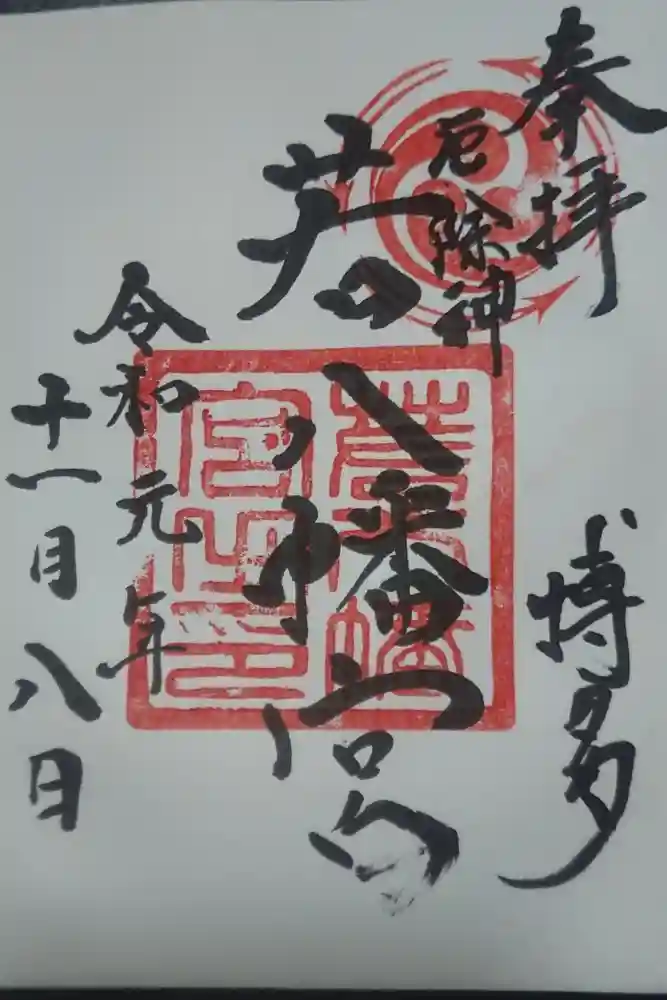 奉拝
博多
厄除神
若八幡宮
令和元年
十一月八日
若八幡宮之印